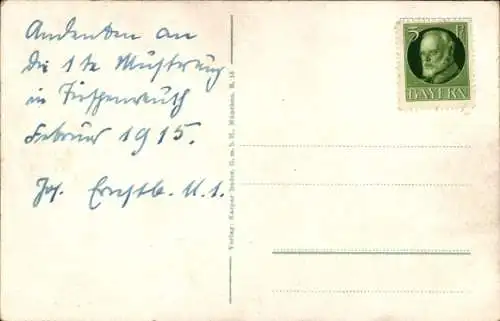 Andenken an
die 1te Musterung
in Tirschenreuth
Februar 1915.
Jos.
5 Pf
BAYERN
Verlag: Kaspar Baden, G. m. b. H., München.